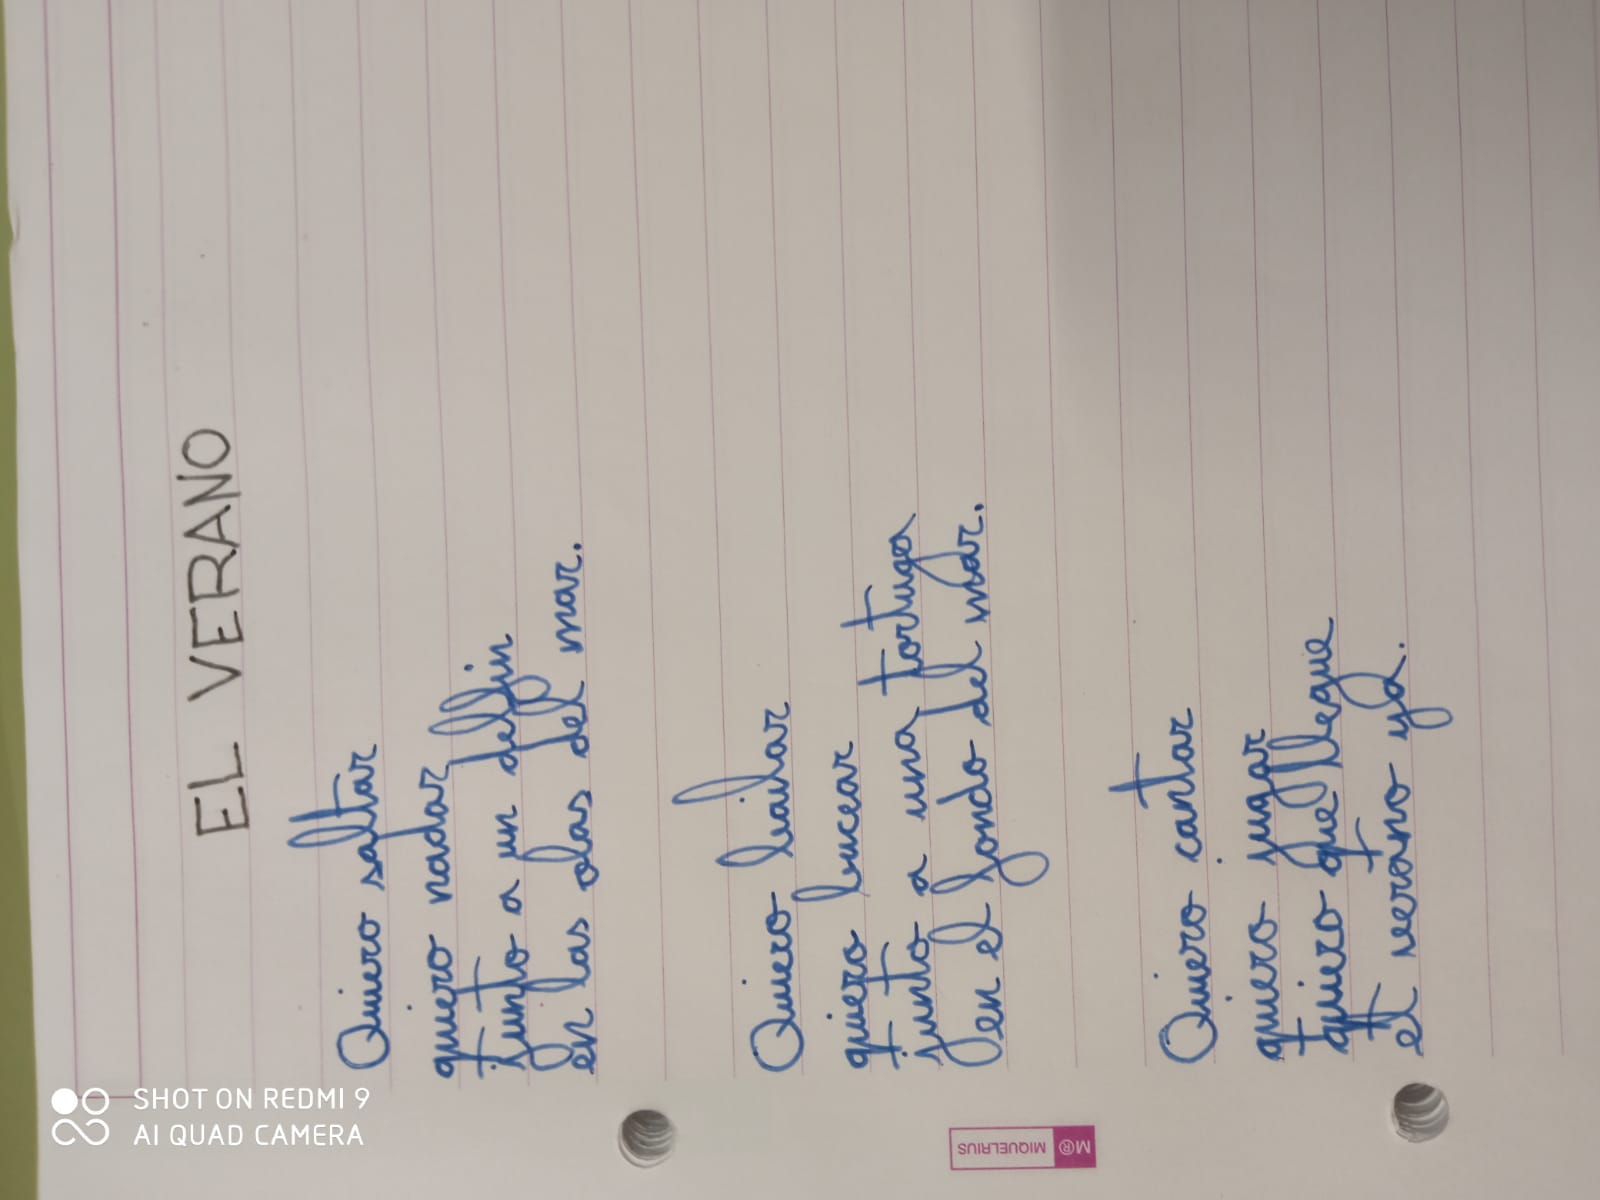 EL VERANO
Quiero saltar
quiero nadar
junto a un delfin
en las olas del mar.
Quiero bailar
quiero bucear
junto a una tortuga
en el fondo del mar.
Quiero cantar
quiero jugar
quiero que llegue
el verano ya.
MR MIQUELRIUS
SHOT ON REDMI 9
AI QUAD CAMERA